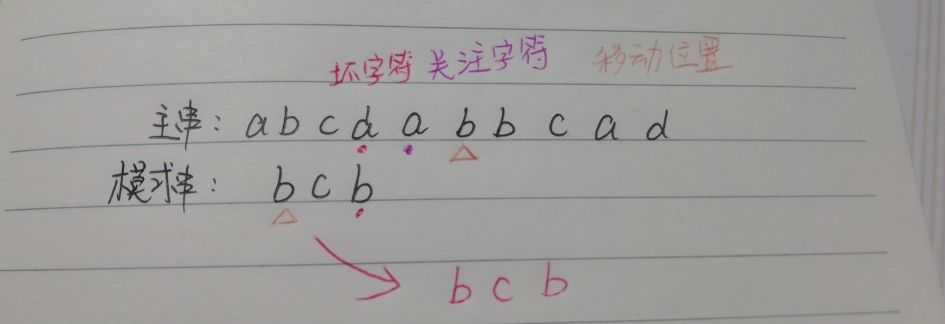 坏字符 关注字符 移动位置
主串: a b c d a b b c a d
模式串: b c b
b c b